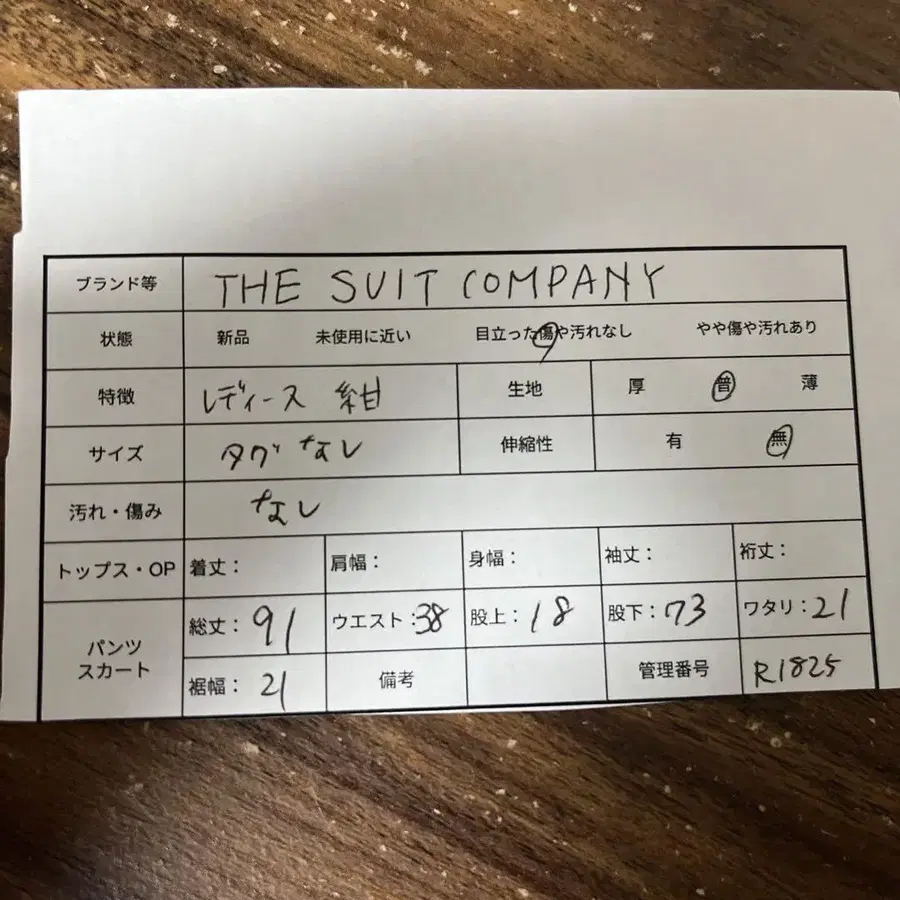 ブランド等 THE SUIT COMPANY
状態 新品 未使用に近い 目立った傷や汚れなし やや傷や汚れあり
特徴 レディース 紺 生地 厚 普 薄
サイズ タグなし 伸縮性 有 無
汚れ・傷み なし
トップス・OP 着丈: 肩幅: 身幅: 袖丈: 裄丈:
パンツ
スカート
総丈:91 ウエスト:38 股上:18 股下:73 ワタリ:21
裾幅:21 備考 管理番号 R1825